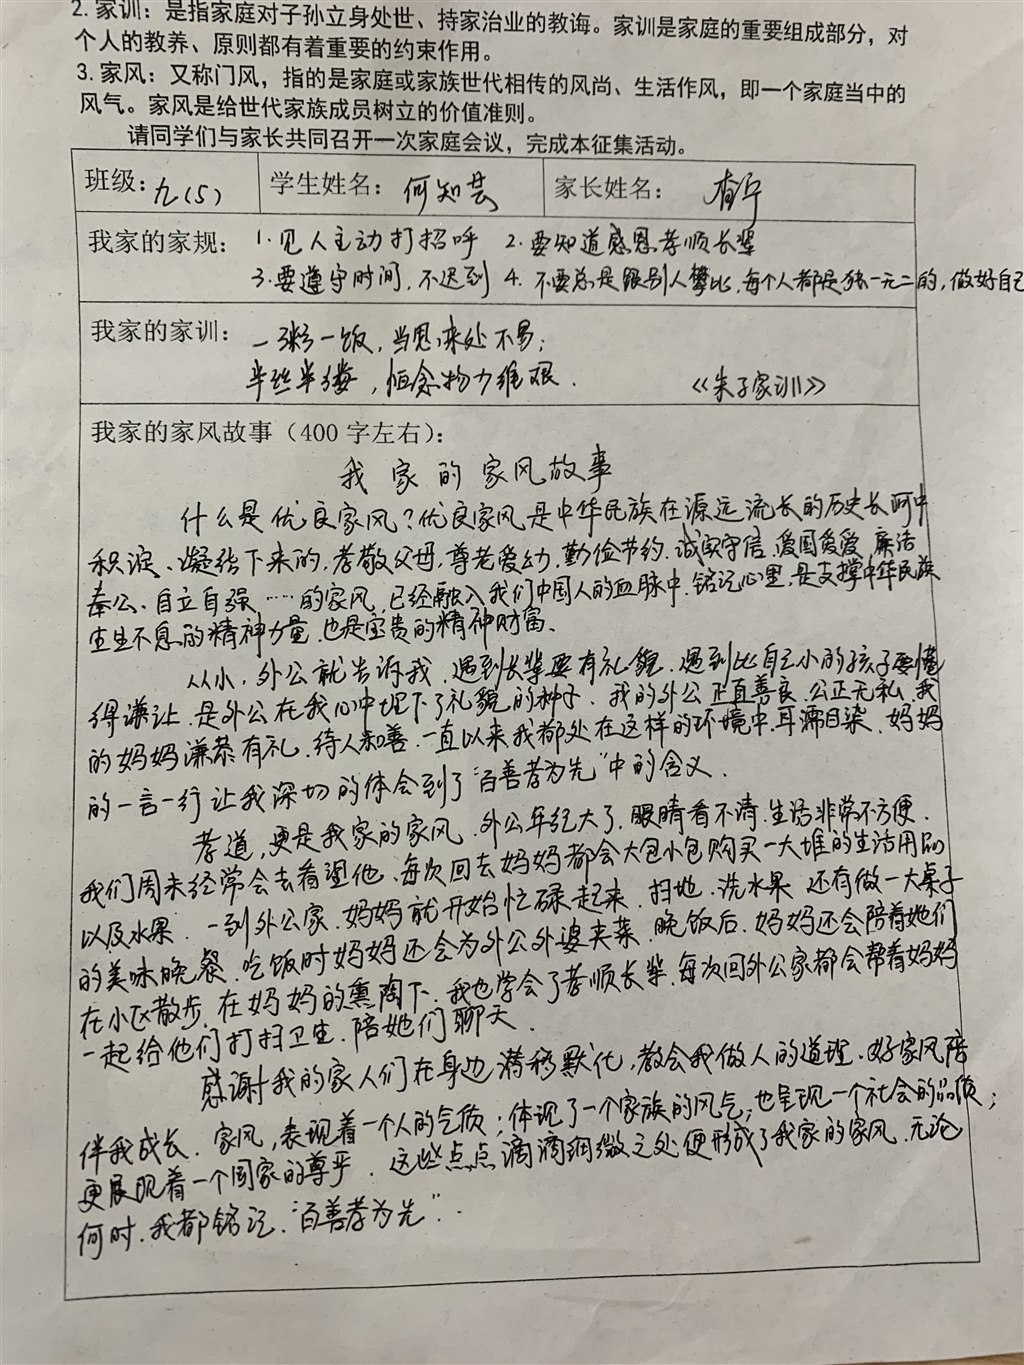 2. 家训：是指家庭对子孙立身处世、持家治业的教诲。家训是家庭的重要组成部分，对
个人的教养、原则都有着重要的约束作用。
3. 家风：又称门风，指的是家庭或家族世代相传的风尚、生活作风，即一个家庭当中的
风气。家风是给世代家族成员树立的价值准则。
请同学们与家长共同召开一次家庭会议，完成本征集活动。
班级：九（5） 学生姓名：何知芸 家长姓名：
我家的家规：1.见人主动打招呼 2.要知道感恩孝顺长辈
3.要遵守时间，不迟到 4.不要总是跟别人攀比，每个人都是独一无二的，做好自己
我家的家训：一粥一饭，当思来处不易；
半丝半缕，恒念物力维艰． 《朱子家训》
我家的家风故事（400 字左右）：
我家的家风故事
什么是优良家风？优良家风是中华民族在源远流长的历史长河中
积淀、凝结下来的，孝敬父母，尊老爱幼，勤俭节约．诚实守信．爱国爱家．廉洁
奉公、自立自强……的家风，已经融入我们中国人的血脉中．铭记心里．是支撑中华民族
生生不息的精神力量．也是宝贵的精神财富、
从小，外公就告诉我．遇到长辈要有礼貌．遇到比自己小的孩子要懂
得谦让．是外公在我心中埋下了礼貌的种子．我的外公正直善良．公正无私．我
的妈妈谦恭有礼．待人和善．一直以来我都处在这样的环境中．耳濡目染．妈妈
的一言一行让我深切的体会到了“百善孝为先”中的含义．
孝道，更是我家的家风．外公年纪大了．眼睛看不清．生活非常不方便．
我们周末经常会去看望他．每次回去妈妈都会大包小包购买一大堆的生活用品
以及水果．一到外公家．妈妈就开始忙碌起来．扫地．洗水果．还有做一大桌子
的美味晚餐．吃饭时妈妈还会为外公外婆夹菜．晚饭后．妈妈还会陪着她们
在小区散步．在妈妈的熏陶下．我也学会了孝顺长辈．每次回外公家都会帮着妈妈
一起给他们打扫卫生．陪她们聊天．
感谢我的家人们在身边潜移默化，教会我做人的道理．好家风陪
伴我成长．家风，表现着一个人的气质；体现了一个家族的风气；也呈现一个社会的品质；
更展现着一个国家的尊严．这些点点滴滴细微之处便形成了我家的家风．无论
何时．我都铭记．“百善孝为先”．